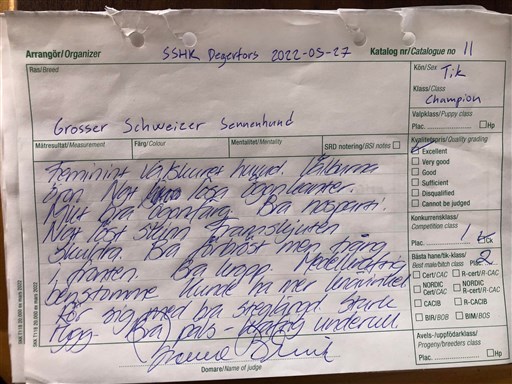 Arrangör/Organizer SSHK Degerfors 2022-05-27 Katalog nr/Catalogue no 11
Ras/Breed
Grosser Schweizer Sennenhund
Kön/Sex Tik
Klass/Class
Champion
Valpklass/Puppy class
Plac. Hp
Mätresultat/Measurement Färg/Colour Mentalitet/Mentality SRD notering/BSI notes
Kvalitetspris/Quality grading
Excellent
Very good
Good
Sufficient
Disqualified
Cannot be judged
Konkurrensklass/
Competition class
Plac. 1 Ck
Bästa hane/tik-klass/
Best male/bitch class Plac. 2
Cert/CAC R-cert/R-CAC
NORDIC Cert/CAC NORDIC R-cert/R-CAC
CACIB R-CACIB
BIR/BOB BIM/BOS
Avels-/uppfödarklass/
Progeny/breeders class
Feminint välskuret huvud.
öron. Nåt lösa ögonkanter.
Milt bra ögonfärg. Bra nosparti.
Nåt löst skinn Framskjuten
skuldra. Bra förbröst men trång
i fronten. Bra kropp.
benstomme Kunde ha mer
för sig med bra steglängd. Stark
rygg. Bra päls underull
Domare/Name of judge